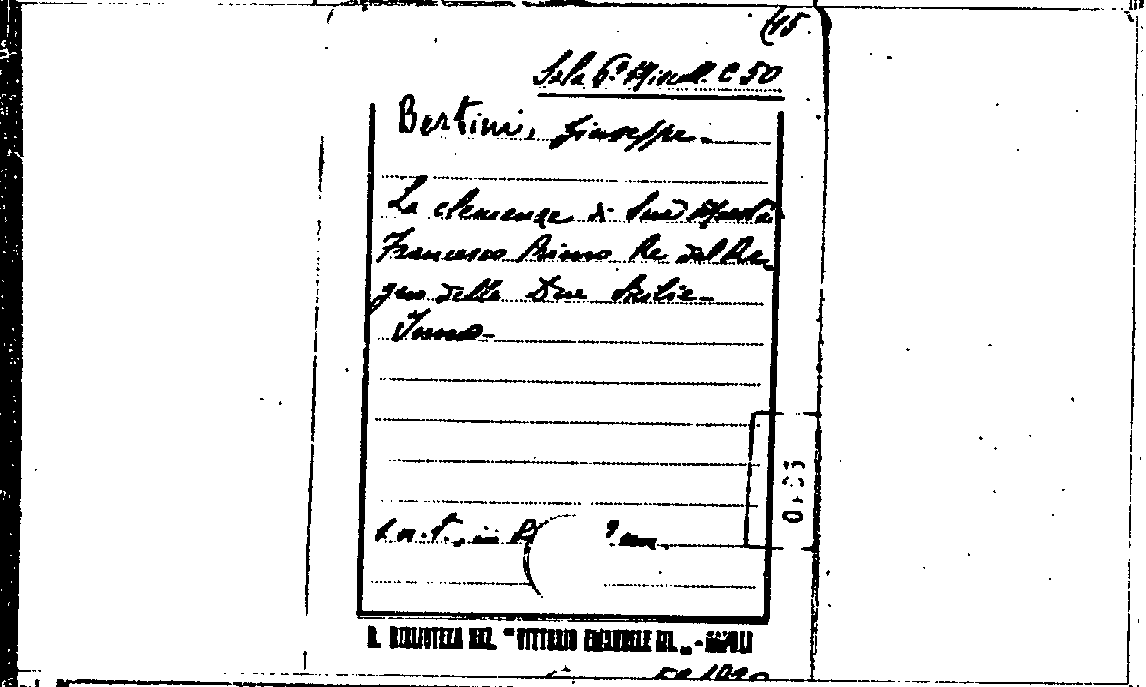 (45
Sala 6ª Miscell. C 50
Bertini, Giuseppe.
La clemenza di Sua Maestà
Francesco Primo Re del Re-
gno delle Due Sicilie.
Inno.
s.n.t., in
R. BIBLIOTECA NAZ. "VITTORIO EMANUELE III" - NAPOLI